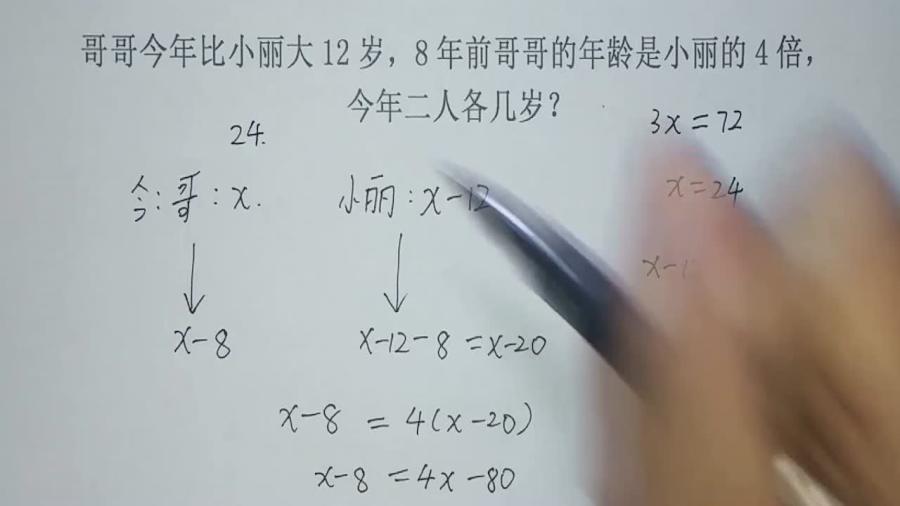 哥哥今年比小丽大12岁，8年前哥哥的年龄是小丽的4倍，
今年二人各几岁？
24.
今:哥:x.
小丽:x-12
x-8
x-12-8=x-20
x-8=4(x-20)
x-8=4x-80
3x=72
x=24
x-1